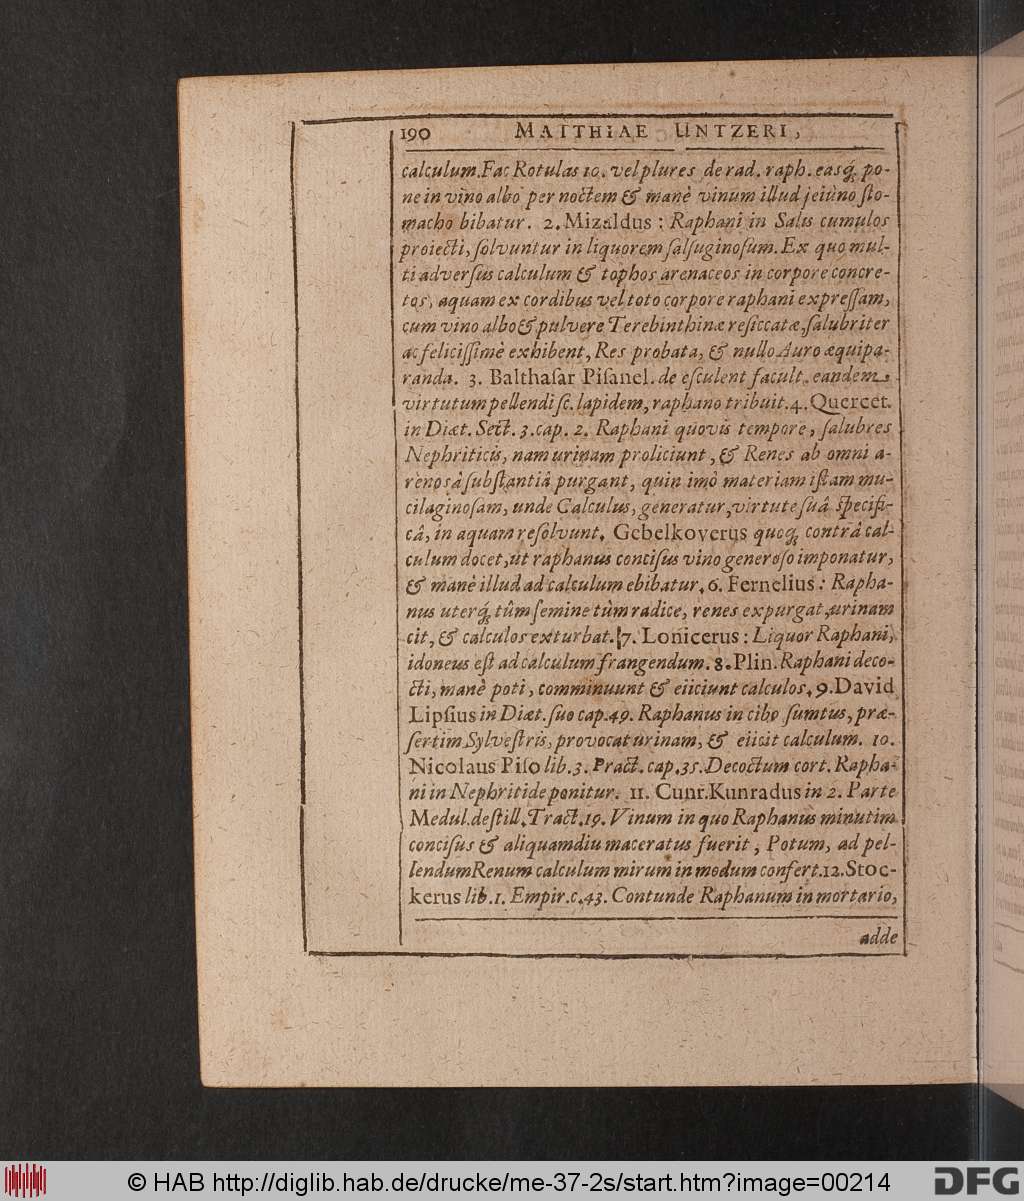 190 MATTHIAE UNTZERI,
calculum. Fac Rotulas 10. vel plures de rad. raph. easq́; po-
ne in vino albo per noctem & manè vinum illud jejúno ſto-
macho bibatur. 2. Mizaldus: Raphani in Salis cumulos
proiecti, ſolvuntur in liquorem ſalſuginoſum. Ex quo mul-
ti adverſus calculum & tophos arenaceos in corpore concre-
tos, aquam ex cordibus vel toto corpore raphani expreſſam,
cum vino albo & pulvere Terebinthinæ reſiccatæ, ſalubriter
ac feliciſſimè exhibent, Res probata, & nullo Auro æquipa-
randa. 3. Balthaſar Piſanel. de eſculent facult. eandem
virtutum pellendi ſc. lapidem, raphano tribuit. 4. Quercet.
in Diæt. Sect. 3. cap. 2. Raphani quovis tempore, ſalubres
Nephriticis, nam urinam proliciunt, & Renes ab omni a-
renosâ ſubſtantiâ purgant, quin imò materiam iſtam mu-
cilaginoſam, unde Calculus, generatur, virtute ſuâ ſpecifi-
câ, in aquam reſolvunt. Gebelkoverus quoq; contrâ cal-
culum docet, ut raphanus conciſus vino generoſo imponatur,
& manè illud ad calculum ebibatur. 6. Fernelius: Rapha-
nus uterq́; tûm ſemine tùm radice, renes expurgat, urinam
cit, & calculos exturbat. 7. Lonicerus: Liquor Raphani,
idoneus eſt ad calculum frangendum. 8. Plin. Raphani deco-
cti, manè poti, comminuunt & eiiciunt calculos. 9. David
Lipſius in Diæt. ſuo cap. 49. Raphanus in cibo ſumtus, præ-
ſertim Sylveſtris, provocat urinam, & eiicit calculum. 10.
Nicolaus Piſo lib. 3. Pract. cap. 35. Decoctum cort. Rapha-
ni in Nephritide ponitur. 11. Cunr. Kunradus in 2. Parte
Medul. deſtill. Tract. 19. Vinum in quo Raphanus minutim
conciſus & aliquamdiu maceratus fuerit, Potum, ad pel-
lendum Renum calculum mirum in modum confert. 12. Stoc-
kerus lib. 1. Empir. c. 43. Contunde Raphanum in mortario,
adde
© HAB http://diglib.hab.de/drucke/me-37-2s/start.htm?image=00214
DFG